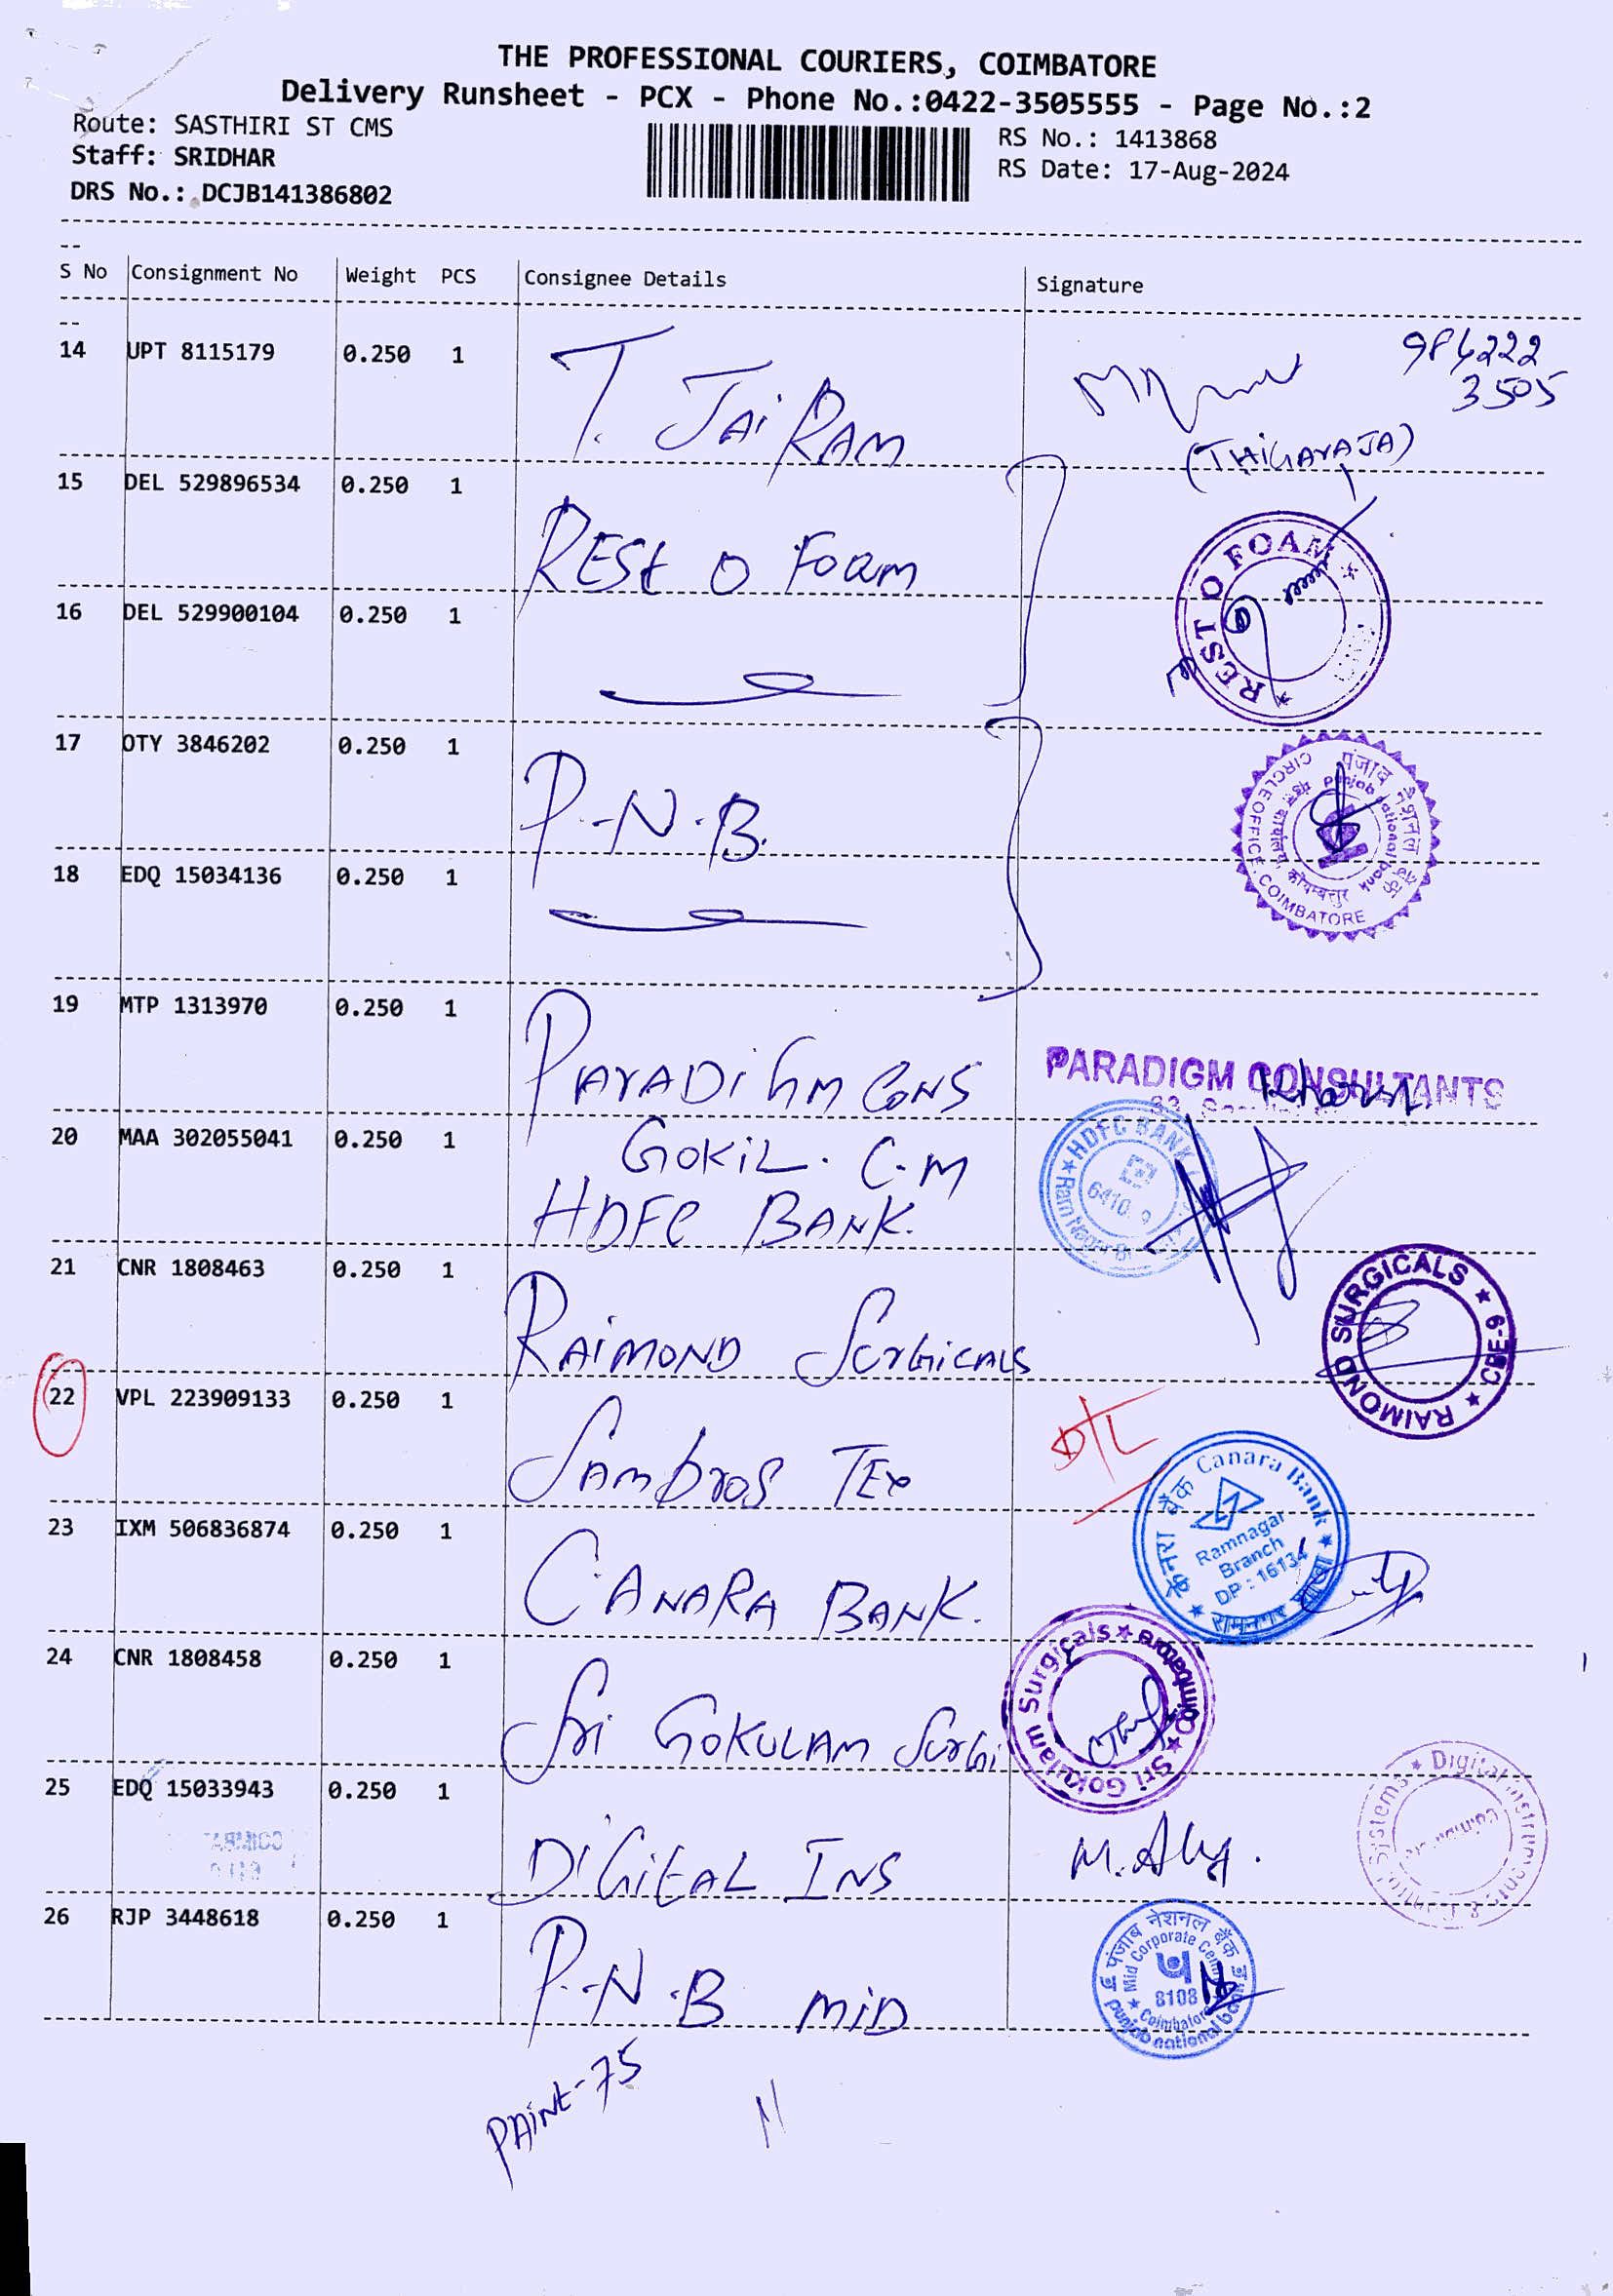 THE PROFESSIONAL COURIERS, COIMBATORE
Delivery Runsheet - PCX - Phone No.:0422-3505555 - Page No.:2
Route: SASTHIRI ST CMS
Staff: SRIDHAR
DRS No.: DCJB141386802
RS No.: 1413868
RS Date: 17-Aug-2024
S No Consignment No Weight PCS Consignee Details Signature
14 UPT 8115179 0.250 1 T. JAi RAM
986222
3505
(THiGAYAJA)
15 DEL 529896534 0.250 1 REST O FOAM
REST O FOAM
16 DEL 529900104 0.250 1
17 OTY 3846202 0.250 1 P.N.B.
पंजाब नैशनल बैंक
punjab national bank
मंडल कार्यालय, कोयम्बत्तूर
CIRCLE OFFICE, COIMBATORE
18 EDQ 15034136 0.250 1
19 MTP 1313970 0.250 1 PARADiGM CONS
PARADIGM CONSULTANTS
20 MAA 302055041 0.250 1 GOKiL. C.M
HDFC BANK.
HDFC BANK
21 CNR 1808463 0.250 1 RAiMOND SURGiCALS
RAIMOND SURGICALS ★ CBE-9 ★
22 VPL 223909133 0.250 1 SAMbroS TEX
D/L
23 IXM 506836874 0.250 1 CANARA BANK.
केनरा बैंक Canara Bank
Ramnagar
Branch
DP : 16134
रामनगर शाखा
24 CNR 1808458 0.250 1 Sri GOKULAM SURGi
Sri Gokulam Surgicals ★ Coimbatore ★
25 EDQ 15033943 0.250 1 DiGiTAL INS
M.
Digital Instruments & Control Systems
Coimbatore
26 RJP 3448618 0.250 1 P.N.B MiD
पंजाब नेशनल बैंक
Mid Corporate Centre
8108
Coimbatore
punjab national bank
PAiNt-75